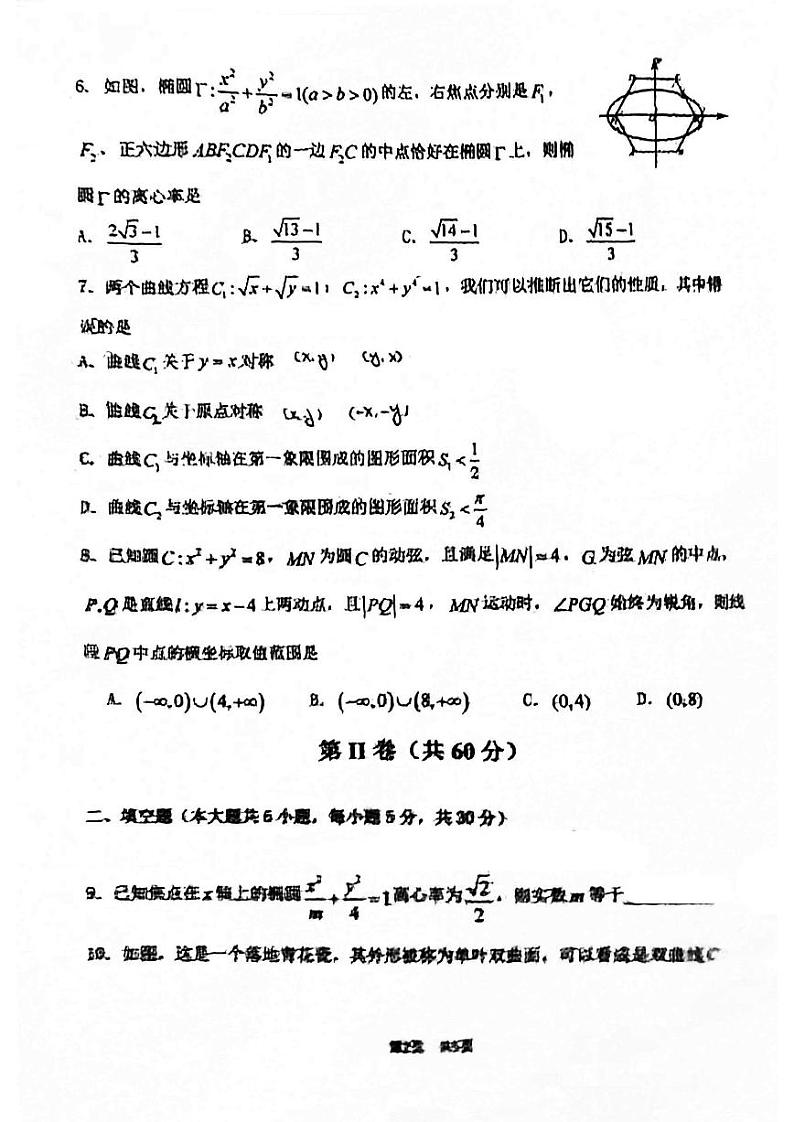 6. 如图，椭圆Γ:x²/a²+y²/b²=1(a>b>0)的左、右焦点分别是F₁，
F₂、正六边形ABF₂CDF₁的一边F₂C的中点恰好在椭圆Γ上，则椭
圆Γ的离心率是
A. (2√3-1)/3 B. (√13-1)/3 C. (√14-1)/3 D. (√15-1)/3
7. 两个曲线方程C₁:√x+√y=1；C₂:x⁴+y⁴=1，我们可以推断出它们的性质，其中错
误的是
A. 曲线C₁关于y=x对称 (x,y) (y,x)
B. 曲线C₂关于原点对称 (x,y) (-x,-y)
C. 曲线C₁与坐标轴在第一象限围成的图形面积S₁<1/2
D. 曲线C₂与坐标轴在第一象限围成的图形面积S₂<π/4
8. 已知圆C:x²+y²=8，MN为圆C的动弦，且满足|MN|=4，G为弦MN的中点，
P,Q是直线l:y=x-4上两动点，且|PQ|=4，MN运动时，∠PGQ始终为锐角，则线
段PQ中点的横坐标取值范围是
A. (-∞,0)∪(4,+∞) B. (-∞,0)∪(8,+∞) C. (0,4) D. (0,8)
第II卷（共60分）
二、填空题（本大题共6小题，每小题5分，共30分）
9. 已知焦点在x轴上的椭圆x²/m+y²/4=1离心率为√2/2，则实数m等于________
10. 如图，这是一个落地青花瓷，其外形被称为单叶双曲面，可以看成是双曲线C
第2页 共5页